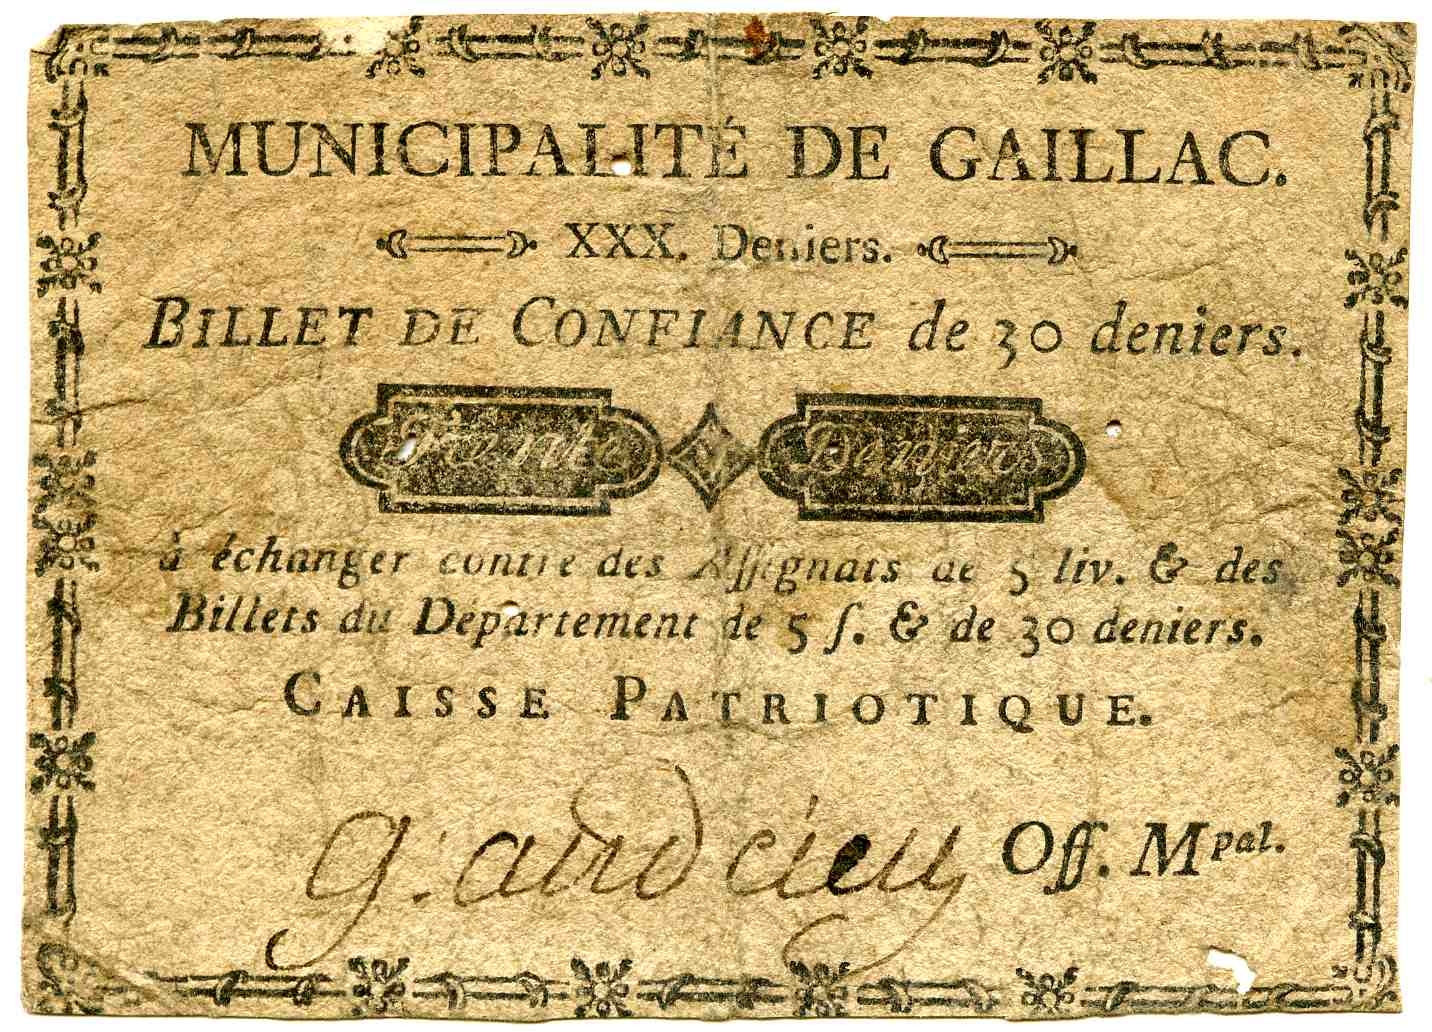 MUNICIPALITÉ DE GAILLAC.
XXX. Deniers.
BILLET DE CONFIANCE de 30 deniers.
Trente Deniers
à échanger contre des Aſſignats de 5 liv. & des
Billets du Département de 5 ſ. & de 30 deniers.
CAISSE PATRIOTIQUE.
Off. Mpal.